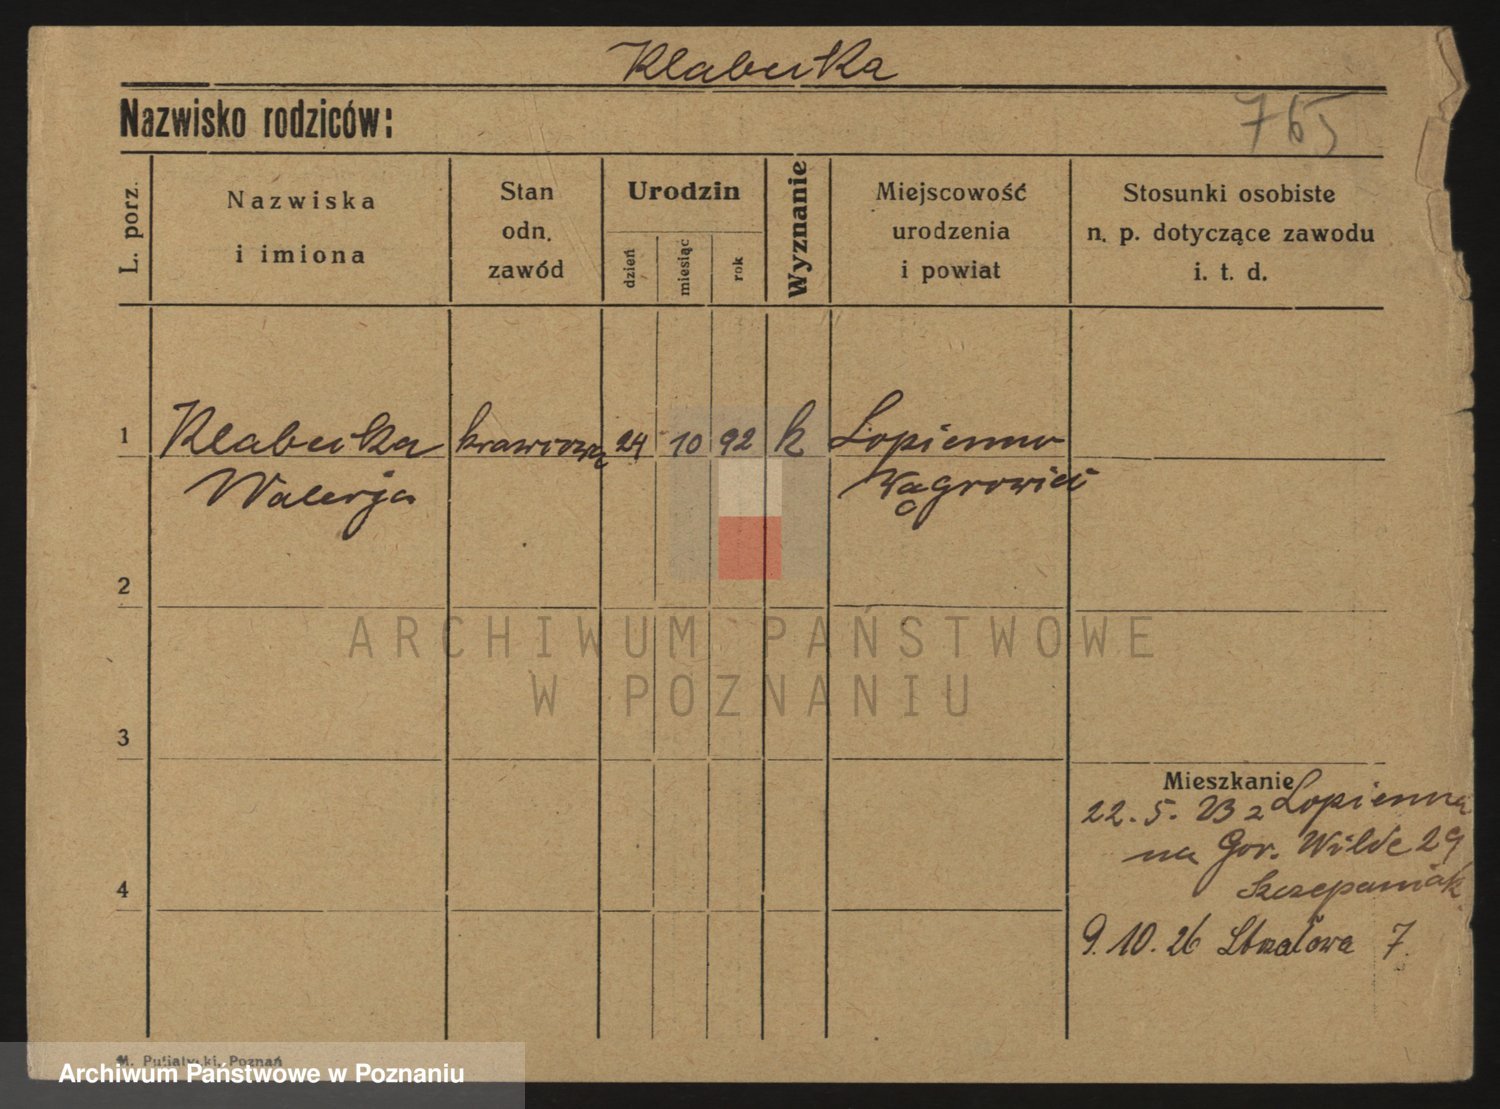 Klabucka
Nazwisko rodziców:
765
L. porz.
Nazwiska
i imiona
Stan
odn.
zawód
Urodzin
dzień
miesiąc
rok
Wyznanie
Miejscowość
urodzenia
i powiat
Stosunki osobiste
n. p. dotyczące zawodu
i. t. d.
1 Klabucka krawcowa 24 10 92 k Łopienno
Walerja Wągrowiec
2
ARCHIWUM PAŃSTWOWE
W POZNANIU
3
Mieszkanie
22. 5. 23 z Łopienna
na Gor. Wilde 29
Szczepaniak
4
9. 10. 26 Strzałowa 7.
M. Putiatycki, Poznań
Archiwum Państwowe w Poznaniu